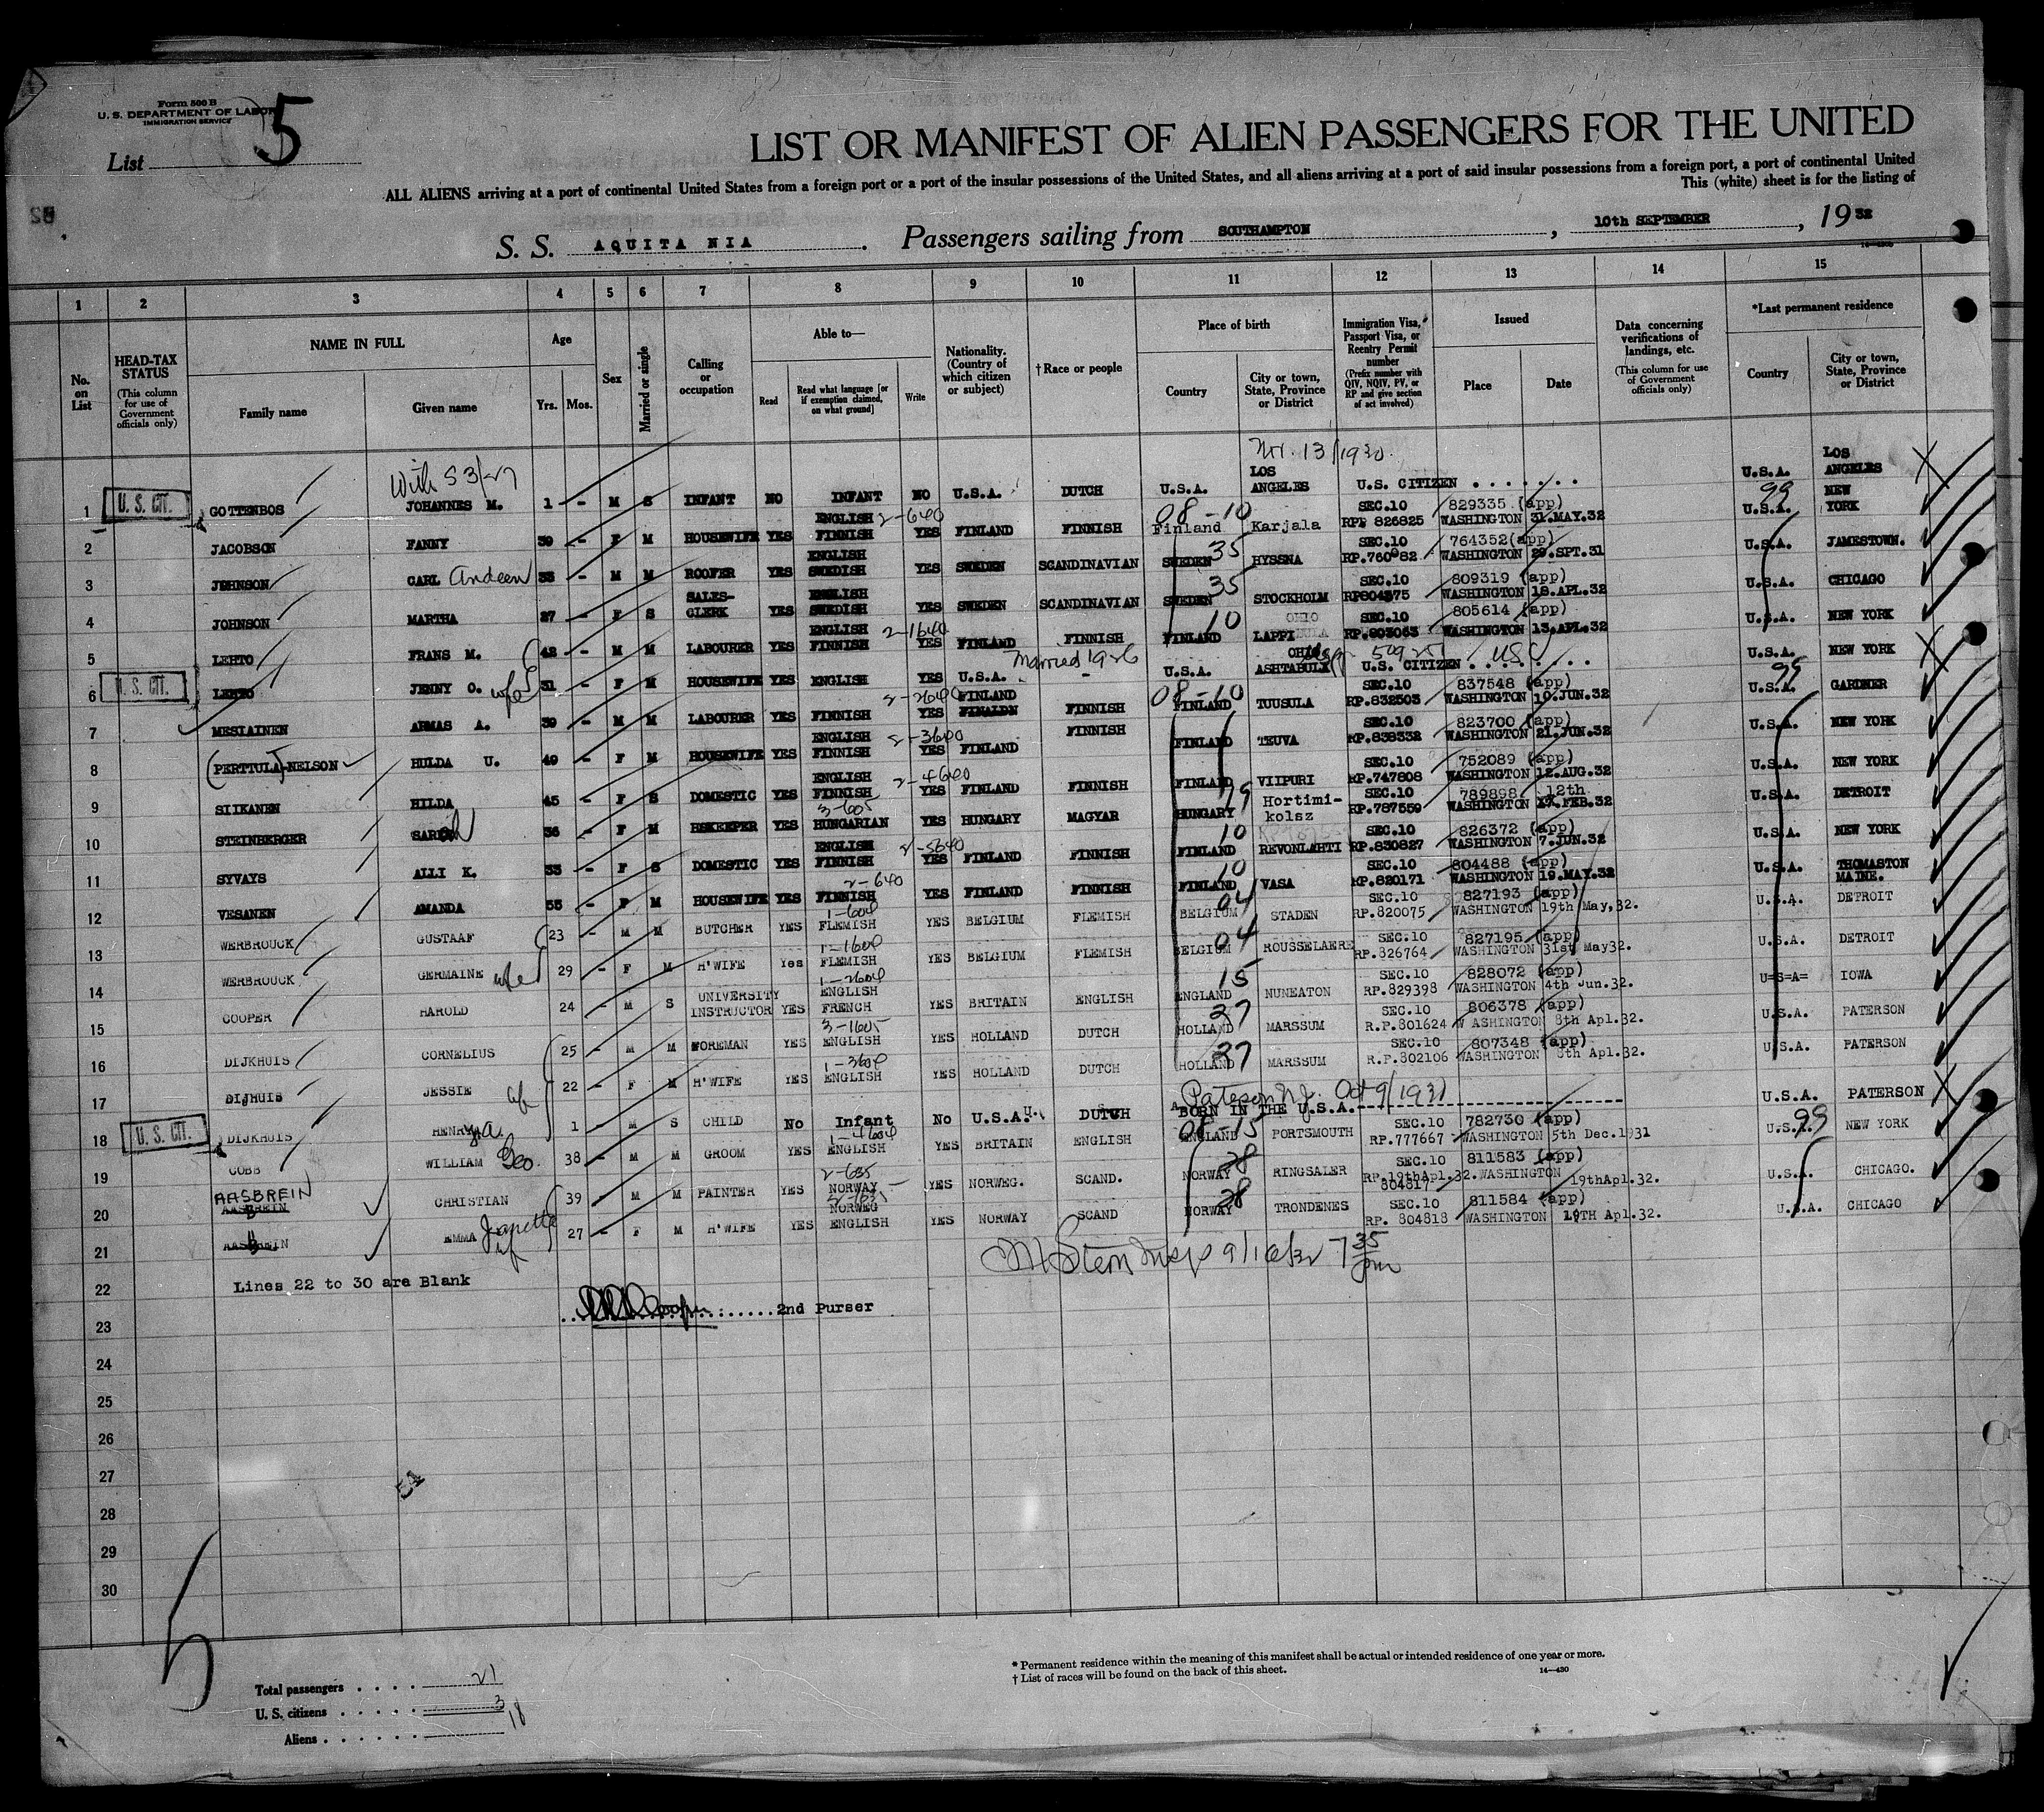 Form 500 B
U. S. DEPARTMENT OF LABOR
IMMIGRATION SERVICE
List 5
LIST OR MANIFEST OF ALIEN PASSENGERS FOR THE UNITED
ALL ALIENS arriving at a port of continental United States from a foreign port or a port of the insular possessions of the United States, and all aliens arriving at a port of said insular possessions from a foreign port, a port of continental United
This (white) sheet is for the listing of
S. S. AQUITA NIA . Passengers sailing from SOUTHAMPTON , 10th SEPTEMBER , 19 32
1 2 3 4 5 6 7 8 9 10 11 12 13 14 15
No. on List
HEAD-TAX STATUS (This column for use of Government officials only)
NAME IN FULL
Family name
Given name
Age
Yrs. Mos.
Sex
Married or single
Calling or occupation
Able to—
Read
Read what language [or if exemption claimed, on what ground]
Write
Nationality. (Country of which citizen or subject)
† Race or people
Place of birth
Country
City or town, State, Province or District
Immigration Visa, Passport Visa, or Reentry Permit number (Prefix number with QIV, NQIV, PV, or RP and give section of act involved)
Issued
Place
Date
Data concerning verifications of landings, etc. (This column for use of Government officials only)
*Last permanent residence
Country
City or town, State, Province or District
With S 3/27
Nov. 13/1930.
1 U. S. CIT. GOTTENBOS JOHANNES M. 1 - M S INFANT NO INFANT NO U.S.A. DUTCH U.S.A. LOS ANGELES U.S. CITIZEN . . . . . . . U.S.A. LOS ANGELES
2 JACOBSON FANNY 39 - F M HOUSEWIFE YES ENGLISH FINNISH 2-640 YES FINLAND FINNISH 08-10 Finland Karjala SEC.10 RPP 826825 829335 (app) WASHINGTON 31.MAY.32 99 U.S.A. NEW YORK
3 JOHNSON CARL Andeen 33 - M M ROOFER YES ENGLISH SWEDISH YES SWEDEN SCANDINAVIAN 35 SWEDEN HYSSNA SEC.10 RP.760982 764352(app) WASHINGTON 29.SPT.31 U.S.A. JAMESTOWN.
4 JOHNSON MARTHA 27 - F S SALES-CLERK YES ENGLISH SWEDISH YES SWEDEN SCANDINAVIAN 35 SWEDEN STOCKHOLM SEC.10 RP804375 809319 (app) WASHINGTON 18.APL.32 U.S.A. CHICAGO
5 LEHTO FRANS M. 42 - M M LABOURER YES ENGLISH FINNISH 2-1640 YES FINLAND FINNISH 10 FINLAND LAPPI SEC.10 RP.803063 805614 (app) WASHINGTON 13.APL.32 U.S.A. NEW YORK
Married 1926
6 U. S. CIT. LEHTO JENNY O. wife 31 - F M HOUSEWIFE YES ENGLISH YES U.S.A. - U.S.A. OHIO ASHTABULA U.S. CITIZEN . . . . . . . USC U.S.A. NEW YORK
7 MESIAINEN ARMAS A. 39 - M M LABOURER YES FINNISH 2-2640 YES FINLAND FINALDN FINNISH 08-10 FINLAND TUUSULA SEC.10 RP.832503 837548 (app) WASHINGTON 10.JUN.32 99 U.S.A. GARDNER
8 (PERTTULA)-NELSON HULDA U. 49 - F M HOUSEWIFE YES ENGLISH FINNISH 2-3640 YES FINLAND FINNISH FINLAND TEUVA SEC.10 RP.838332 823700 (app) WASHINGTON 21.JUN.32 U.S.A. NEW YORK
9 SIIKANEN HILDA 45 - F S DOMESTIC YES ENGLISH FINNISH 2-4640 YES FINLAND FINNISH FINLAND VIIPURI SEC.10 RP.747808 752089 (app) WASHINGTON 12.AUG.32 U.S.A. NEW YORK
10 STEINBERGER 36 - F M HSKEEPER YES 3-605 HUNGARIAN YES HUNGARY MAGYAR 19 HUNGARY Hortimi-kolsz SEC.10 RP.787559 789898 12th WASHINGTON FEB.32 U.S.A. DETROIT
11 SYVAYS ALLI K. 33 - F S DOMESTIC YES ENGLISH FINNISH 2-5640 YES FINLAND FINNISH 10 FINLAND REVONLAHTI SEC.10 RP.830827 826372 (app) WASHINGTON 7.JUN.32 U.S.A. NEW YORK
12 VESANEN AMANDA 55 - F M HOUSEWIFE YES 2-640 FINNISH YES FINLAND FINNISH 10 FINLAND VASA SEC.10 RP.820171 804488 (app) WASHINGTON 19.MAY.32 U.S.A. THOMASTON MAINE.
13 WERBROUCK GUSTAAF 23 - M M BUTCHER YES 1-604 FLEMISH YES BELGIUM FLEMISH 04 BELGIUM STADEN SEC.10 RP.820075 827193 (app) WASHINGTON 19th May,32. U.S.A. DETROIT
14 WERBROUCK GERMAINE wife 29 - F M H'WIFE Yes 1-1604 FLEMISH YES BELGIUM FLEMISH 04 BELGIUM ROUSSELAERE SEC.10 RP.826764 827195 (app) WASHINGTON 31st May32. U.S.A. DETROIT
15 COOPER HAROLD 24 - M S UNIVERSITY INSTRUCTOR YES 1-2604 ENGLISH FRENCH YES BRITAIN ENGLISH 15 ENGLAND NUNEATON SEC.10 RP.829398 828072 (app) WASHINGTON 4th Jun.32. U=S=A= IOWA
16 DIJKHUIS CORNELIUS 25 - M M FOREMAN YES 3-1605 ENGLISH YES HOLLAND DUTCH 27 HOLLAND MARSSUM SEC.10 R.P.801624 806378 (app) W ASHINGTON 8th Apl.32. U.S.A. PATERSON
17 DIJHUIS JESSIE wf 22 - F M H'WIFE YES 1-3604 ENGLISH YES HOLLAND DUTCH 27 HOLLAND MARSSUM SEC.10 R.P.802106 807348 (app) WASHINGTON 8th Apl.32. U.S.A. PATERSON
Paterson N.J. Oct 9/1931
18 U. S. CIT. DIJKHUIS 1 - M S CHILD No Infant No U.S.A. DUTCH BORN IN THE U.S.A. U.S.A. PATERSON
19 COBB WILLIAM Geo. 38 - M M GROOM YES 1-4604 ENGLISH YES BRITAIN ENGLISH 08-15 ENGLAND PORTSMOUTH SEC.10 RP.777667 782730 (app) WASHINGTON 5th Dec.1931 99 U.S.A. NEW YORK
20 AASBREIN CHRISTIAN 39 - M M PAINTER YES 2-635 NORWAY YES NORWEG. SCAND. 28 NORWAY RINGSALER SEC.10 RP.19thApl.32. 804817 811583 (app) WASHINGTON 19thApl.32. U.S.A. CHICAGO.
21 AASBREIN EMMA Janette wf 27 - F M H'WIFE YES 2-1635 NORWEG ENGLISH YES NORWAY SCAND 28 NORWAY TRONDENES SEC.10 RP. 804818 811584 (app) WASHINGTON 19TH Apl.32. U.S.A. CHICAGO
Stern Insp 9/16/32 7 35 pm
22 Lines 22 to 30 are Blank
Cooper 2nd Purser
23
24
25
26
27
28
29
30
54
5
* Permanent residence within the meaning of this manifest shall be actual or intended residence of one year or more.
† List of races will be found on the back of this sheet. 14—430
Total passengers . . . . 21
U. S. citizens . . . . . 3
Aliens . . . . . . 18